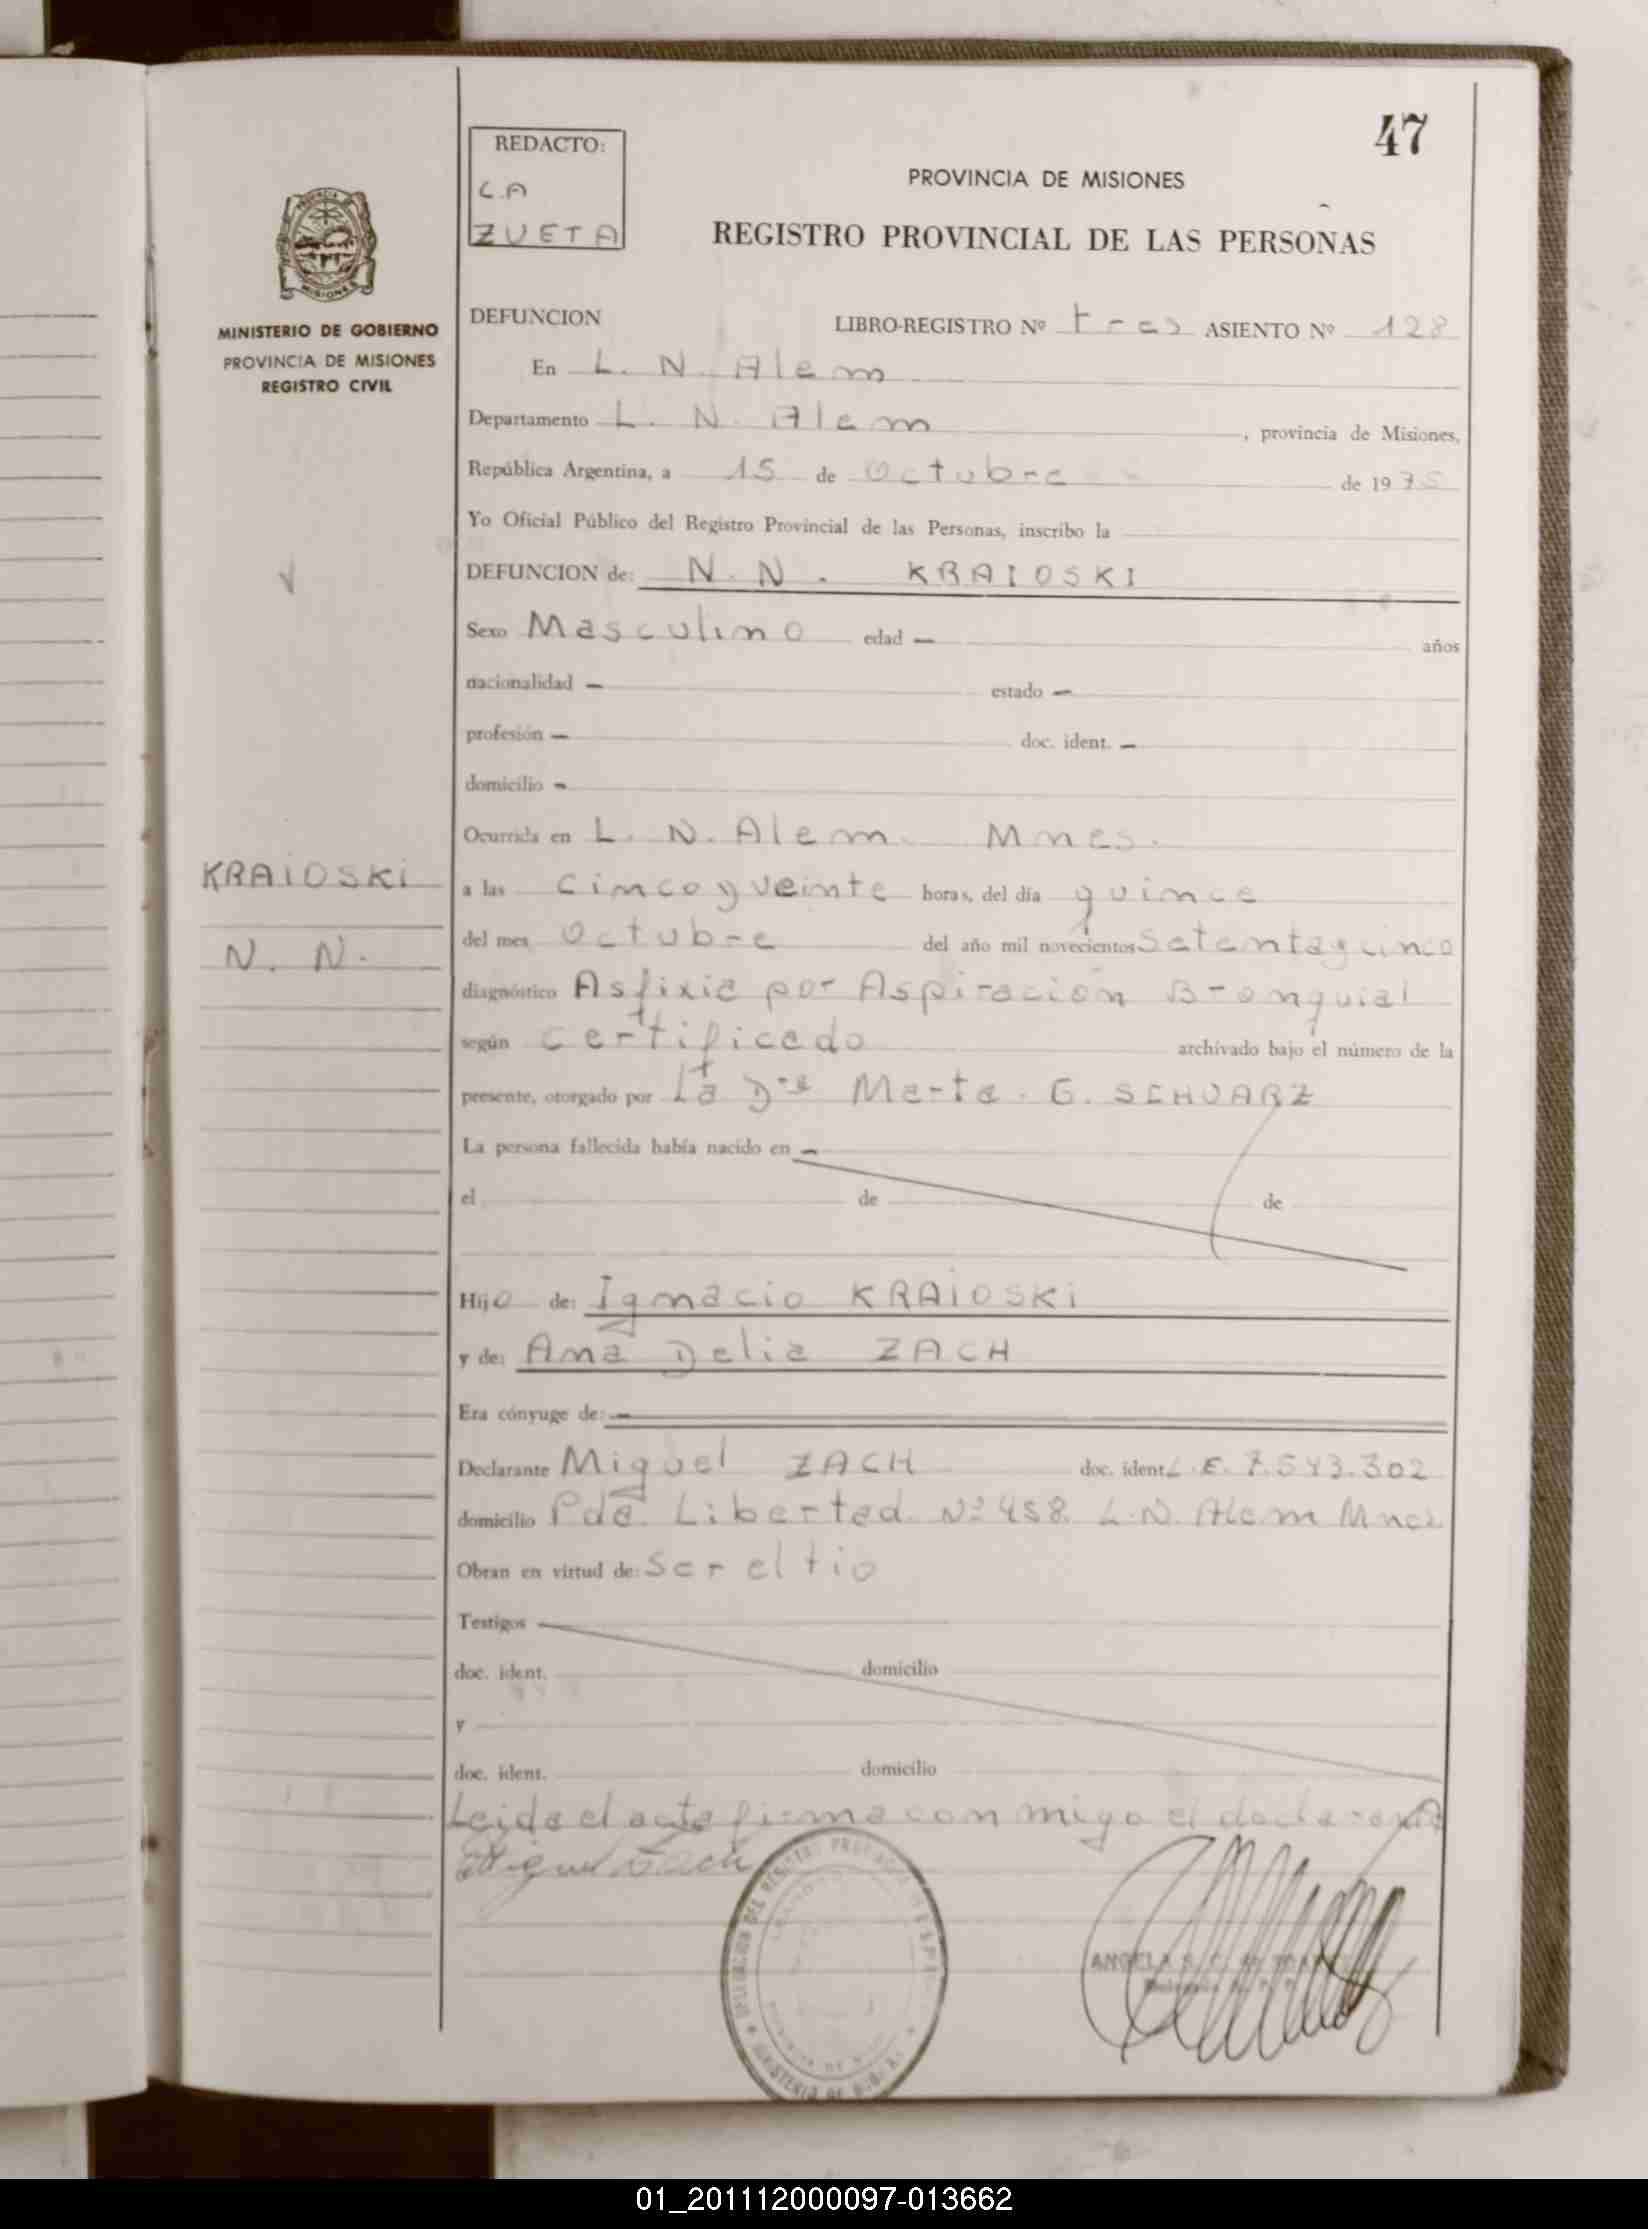 47
REDACTO:
C.A
ZUETA
PROVINCIA DE MISIONES
REGISTRO PROVINCIAL DE LAS PERSONAS
MINISTERIO DE GOBIERNO
PROVINCIA DE MISIONES
REGISTRO CIVIL
DEFUNCION LIBRO-REGISTRO Nº tres ASIENTO Nº 128
En L. N. Alem
Departamento L. N. Alem, provincia de Misiones,
República Argentina, a 15 de Octubre de 1975
Yo Oficial Público del Registro Provincial de las Personas, inscribo la
DEFUNCION de: N. N. KRAIOSKI
Sexo Masculino edad — años
nacionalidad — estado —
profesión — doc. ident. —
domicilio —
Ocurrida en L. N. Alem. Mnes.
KRAIOSKI
N. N.
a las cinco y veinte horas, del día quince
del mes Octubre del año mil novecientos setenta y cinco
diagnóstico Asfixia por Aspiración Bronquial
según certificado archivado bajo el número de la
presente, otorgado por La Dra Marta. G. SCHUARZ
La persona fallecida había nacido en —
el de de
Hijo de: Ignacio KRAIOSKI
y de: Ana Delia ZACH
Era cónyuge de: —
Declarante Miguel ZACH doc. ident. L.E. 7.543.302
domicilio Pda. Libertad Nº 458. L.N. Alem Mnes
Obran en virtud de: Ser el tio
Testigos
doc. ident. domicilio
y
doc. ident. domicilio
Leida el acta firma con migo el declarante
Miguel Zach
ANGELA S. C. de
01_201112000097-013662